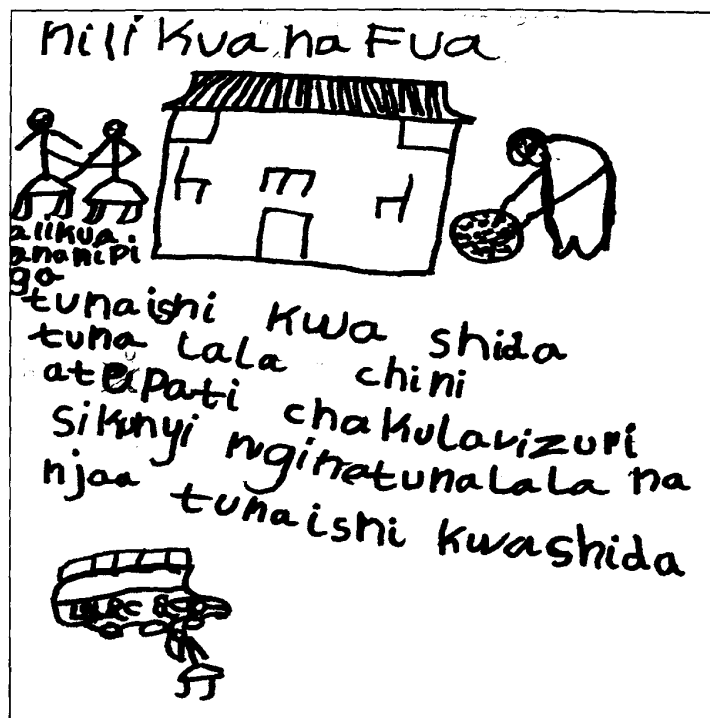 nili kua na Fua
alikua
ananipi
ga
tunaishi kwa shida
tuna lala chini
atupati chakula vizuri
sikunyi nginetunalala na
njaa tunaishi kwashida